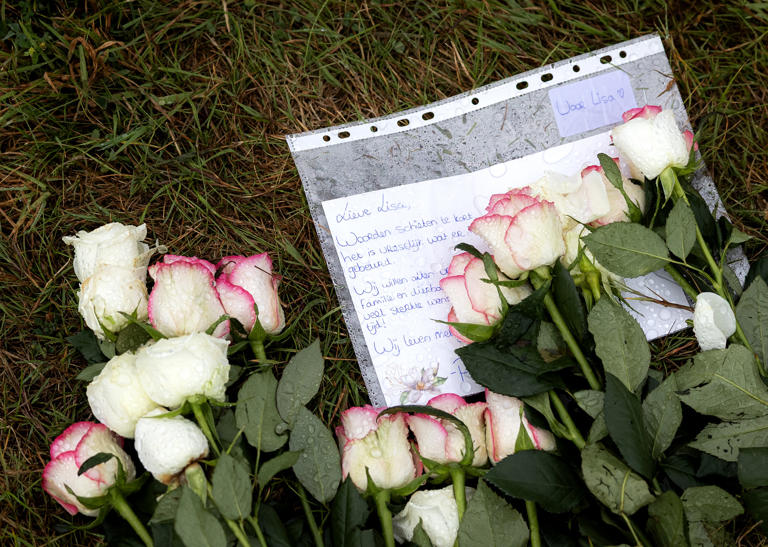 Voor Lisa ♡
Lieve Lisa,
Woorden schieten te kort
het is vreselijk wat er
gebeurd.
Wij willen
familie en
veel sterkte
tijd!
Wij leven me